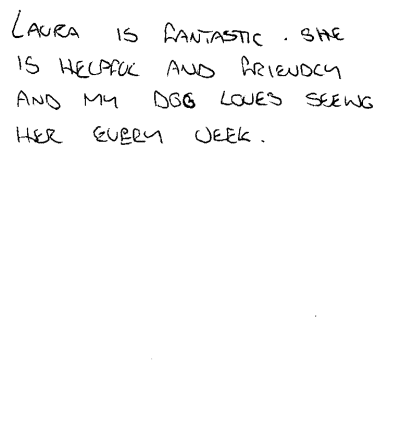 LAURA IS FANTASTIC. SHE
IS HELPFUL AND FRIENDLY
AND MY DOG LOVES SEEING
HER EVERY WEEK.